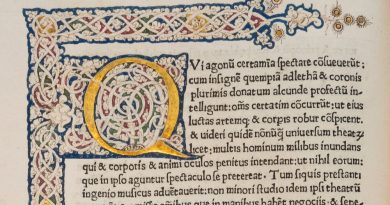 QVi agonũ certamĩa spectare cõsueuerũt;
cum insignē quempiã adlethã & coronis
plurimis donatum alicunde profectũ in
telligunt: oms certatim cõcurrũt; ut eius
luctas artemq; & corpis robur cõspicent.
& uideri quidē nonũq; uniuersum thea
licet; multis hominum milibus inundans
qui & corporis & animi oculos penitus intendant: ut nihil eorum:
que in ipso aguntur spectaculo se pretereat. Tum siquis prestanti
ingenio musicus aduētauerit: non minori studio idem ipsi theatrũ